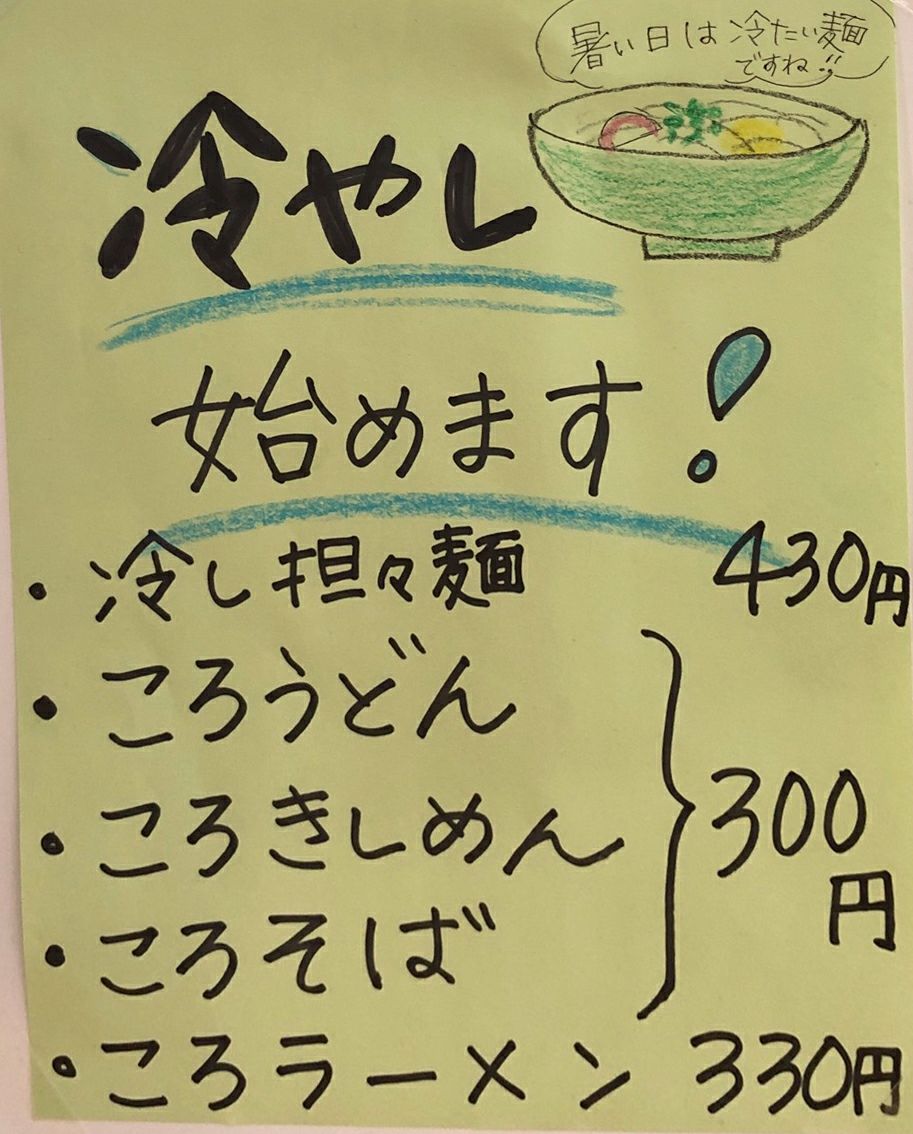 暑い日は冷たい麺
ですね!!
冷やし
始めます!
・冷し担々麺 430円
・ころうどん
・ころきしめん
300円
・ころそば
・ころラーメン 330円